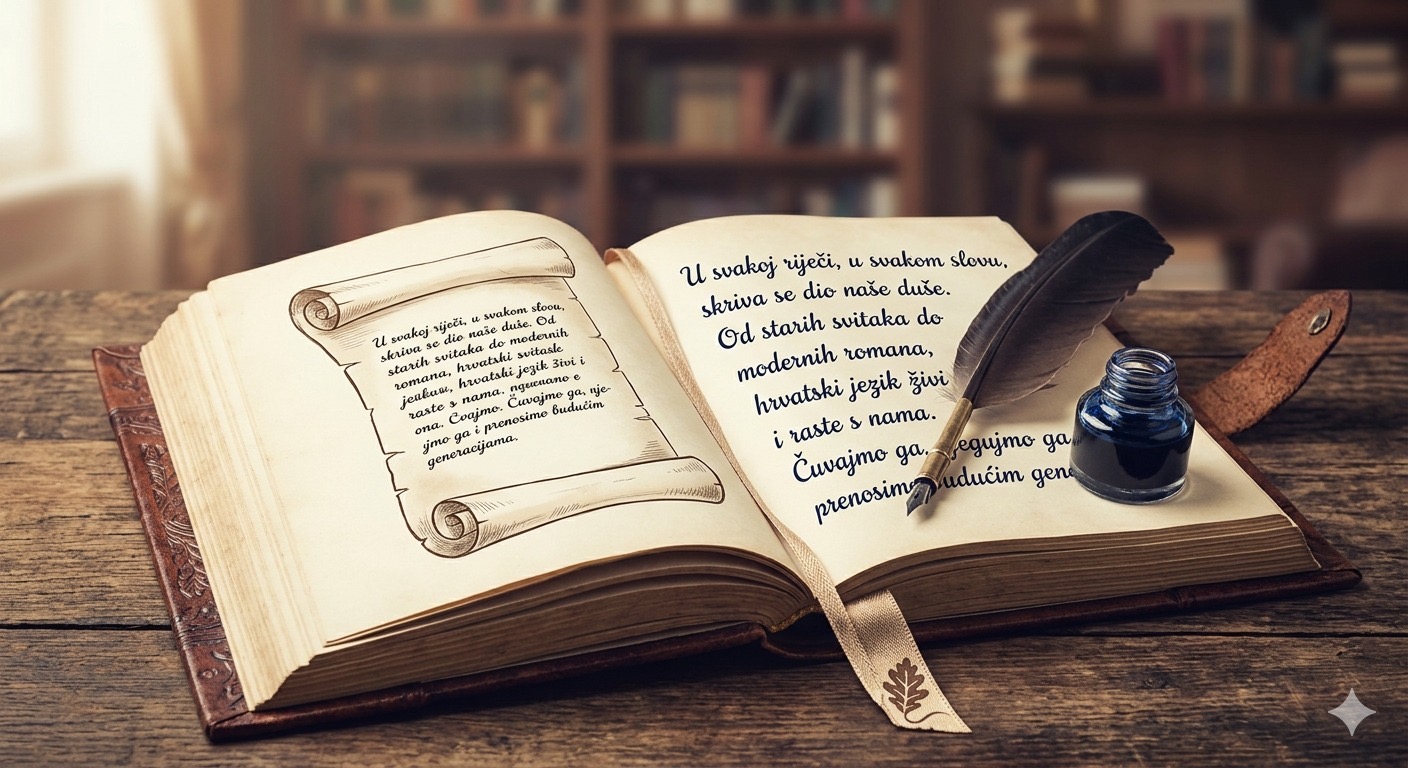 U svakoj riječi, u svakom slovu,
skriva se dio naše duše. Od
starih svitaka do modernih
romana, hrvatski svitasle
hrvatski jezik živi i
raste s nama.
ona. Čuvajmo ga, nje-
jmo ga i prenosimo budućim
generacijama.
U svakoj riječi, u svakom slovu,
skriva se dio naše duše.
Od starih svitaka do
modernih romana,
hrvatski jezik živi
i raste s nama.
Čuvajmo ga, ga
prenosimo budućim